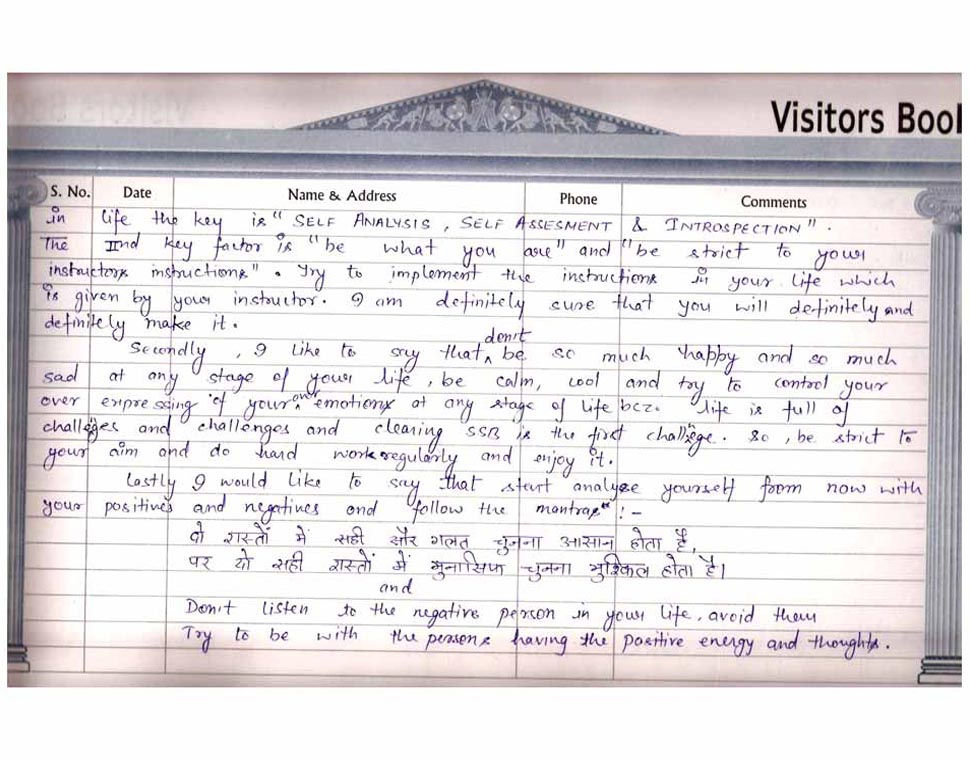 Visitors Bool
S. No. Date Name & Address Phone Comments
in life the key is "SELF ANALYSIS, SELF ASSESMENT & INTROSPECTION".
The IInd key factor is "be what you are" and "be strict to your
instructors instructions". Try to implement the instructions in your life which
is given by your instructor. I am definitely sure that you will definitely and
definitely make it.
Secondly, I like to say that don't be so much happy and so much
sad at any stage of your life, be calm, cool and try to control your
over expressing of your own emotions at any stage of life bcz. life is full of
challenges and challenges and clearing SSB is the first challenge. So, be strict to
your aim and do hard work regularly and enjoy it.
Lastly I would like to say that start analyse yourself from now with
your positives and negatives and follow the mantras" :-
दो रास्तों में सही और गलत चुनना आसान होता है,
पर दो सही रास्तों में मुनासिफ चुनना मुश्किल होता है।
and
Don't listen to the negative person in your life, avoid them
Try to be with the persons having the positive energy and thoughts.